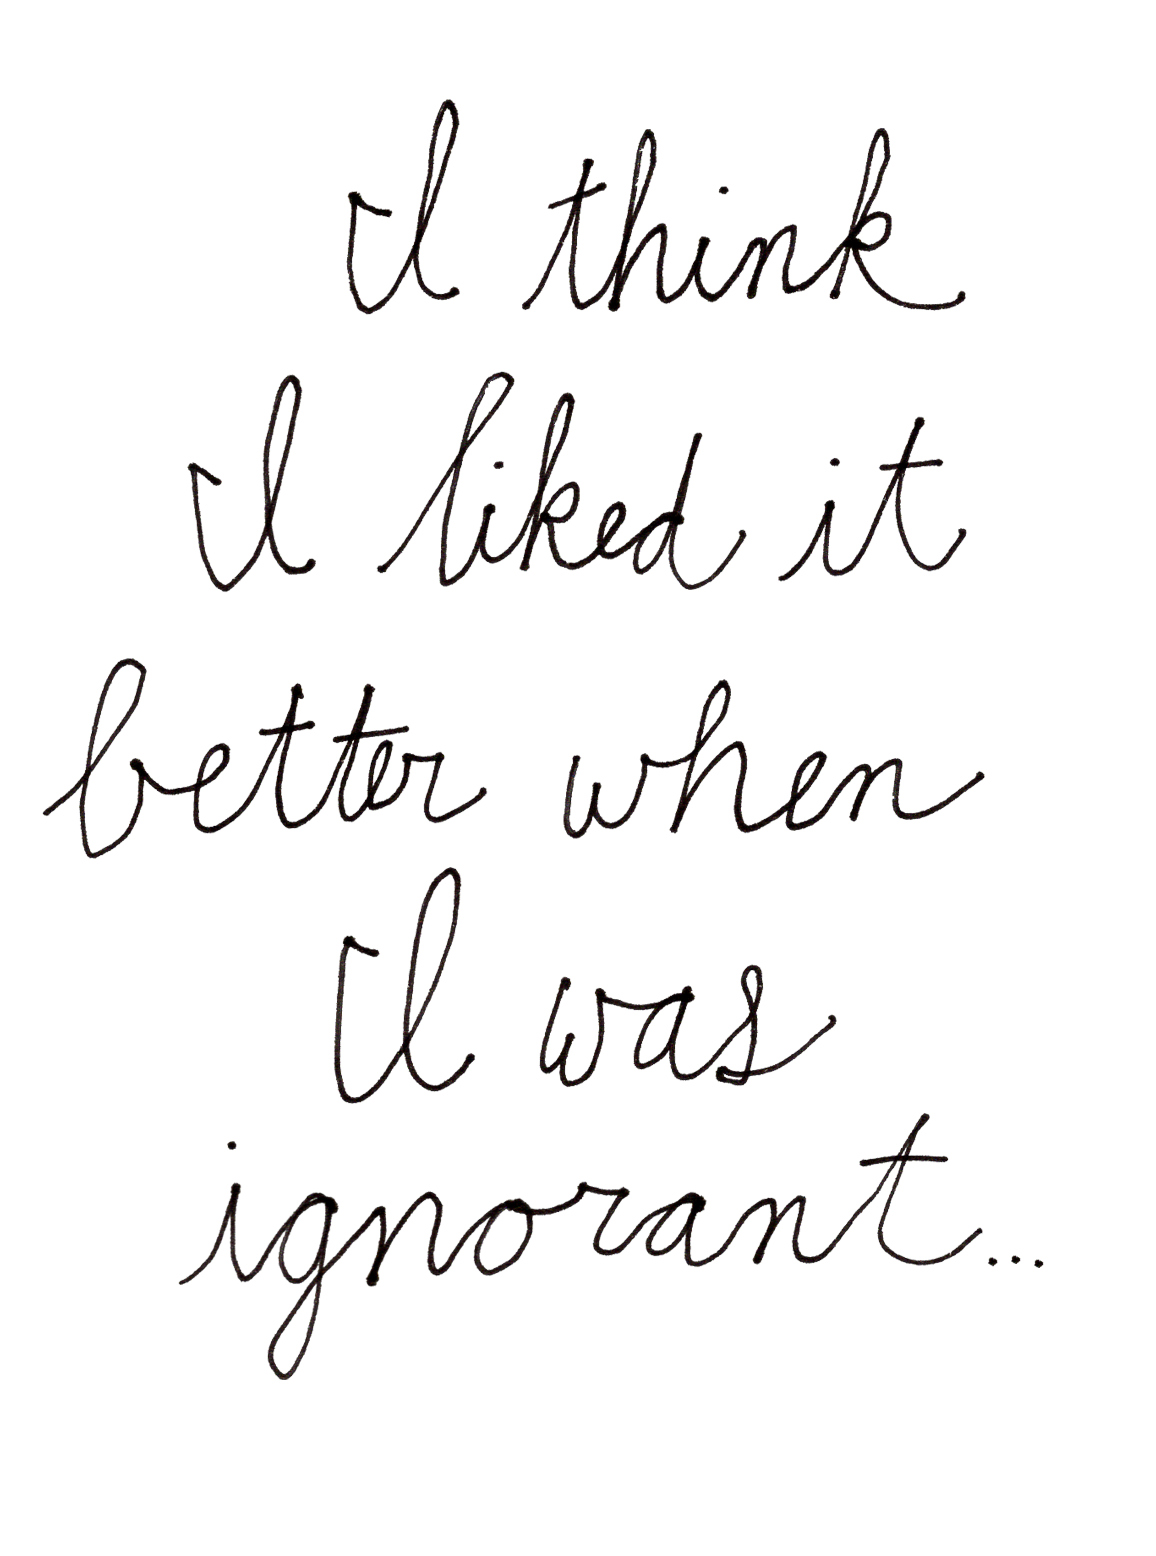 I think
I liked it
better when
I was
ignorant...